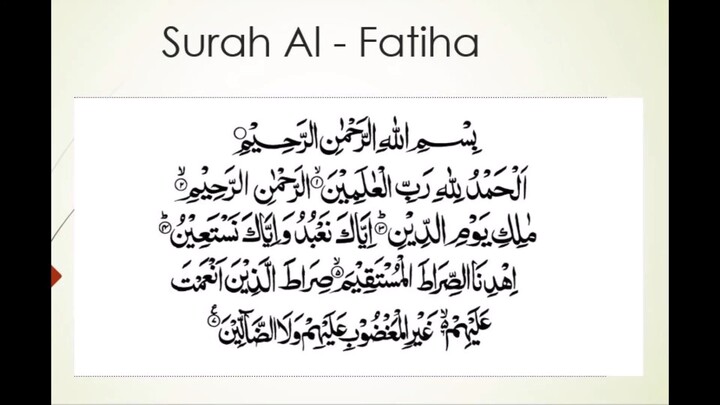 Surah Al - Fatiha
بِسْمِ اللهِ الرَّحْمٰنِ الرَّحِيْمِ ○
اَلْحَمْدُ لِلّٰهِ رَبِّ الْعٰلَمِيْنَ ۙ﴿۱﴾ الرَّحْمٰنِ الرَّحِيْمِ ۙ﴿۲﴾
مٰلِكِ يَوْمِ الدِّيْنِ ؕ﴿۳﴾ اِيَّاكَ نَعْبُدُ وَاِيَّاكَ نَسْتَعِيْنُ ؕ﴿۴﴾
اِهْدِنَا الصِّرَاطَ الْمُسْتَقِيْمَ ۙ﴿۵﴾ صِرَاطَ الَّذِيْنَ اَنْعَمْتَ
عَلَيْهِمْ ۙ۬﴿۶﴾ غَيْرِ الْمَغْضُوْبِ عَلَيْهِمْ وَلَا الضَّآلِّيْنَ ﴿۷﴾